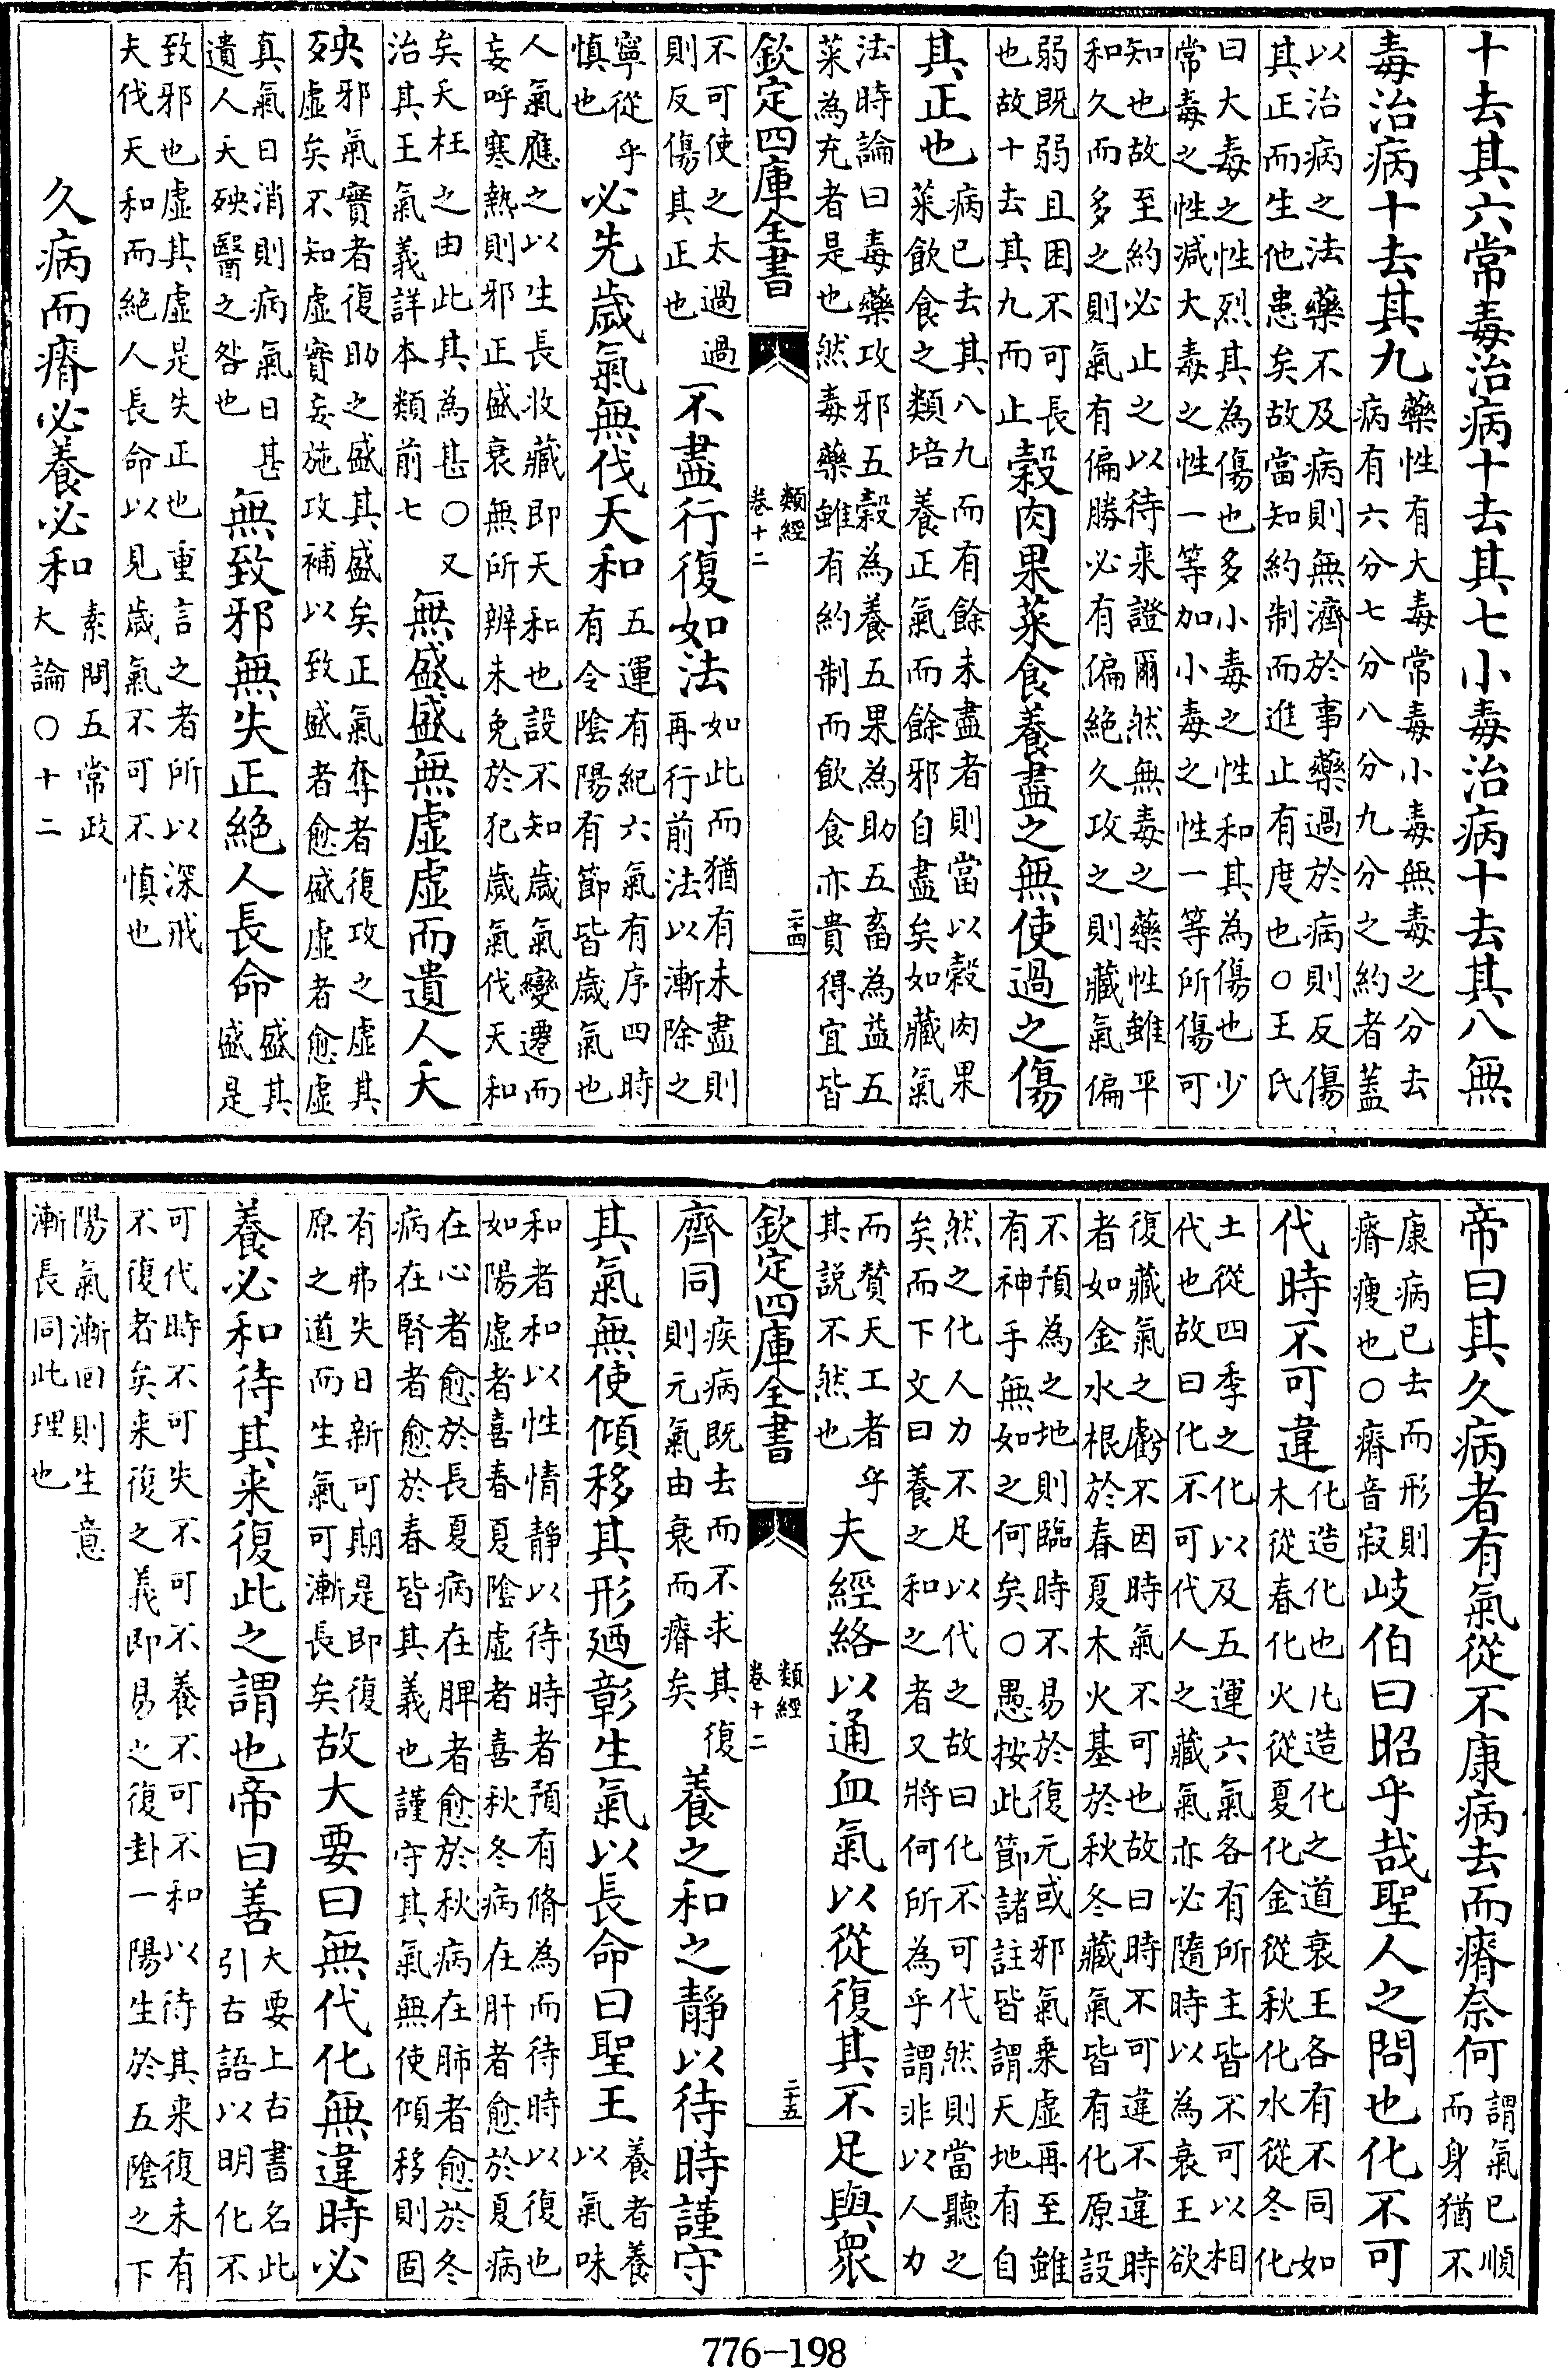 十去其六常毒治病十去其七小毒治病十去其八無
毒治病十去其九
藥性有大毒常毒小毒無毒之分去
病有六分七分八分九分之約者蓋
以治病之法藥不及病則無濟於事藥過於病則反傷
其正而生他患矣故當知約制而進止有度也○王氏
曰大毒之性烈其為傷也多小毒之性和其為傷也少
常毒之性減大毒之性一等加小毒之性一等所傷可
知也故至約必止之以待来證爾然無毒之藥性雖平
和久而多之則氣有偏勝必有偏絕久攻之則藏氣偏
弱既弱且困不可長
也故十去其九而止
穀肉果菜食養盡之無使過之傷
其正也
病已去其八九而有餘未盡者則當以穀肉果
菜飲食之類培養正氣而餘邪自盡矣如藏氣
法時論曰毒藥攻邪五穀為養五果為助五畜為益五
菜為充者是也然毒藥雖有約制而飲食亦貴得宜皆
欽定四庫全書
類經
卷十二
二十四
不可使之太過過
則反傷其正也
不盡行復如法
如此而猶有未盡則
再行前法以漸除之
寧從乎
慎也
必先歲氣無伐天和
五運有紀六氣有序四時
有令陰陽有節皆歲氣也
人氣應之以生長收藏即天和也設不知歲氣變遷而
妄呼寒熱則邪正盛衰無所辨未免於犯歲氣伐天和
矣夭枉之由此其為甚○又
治其王氣義詳本類前七
無盛盛無虛虛而遺人夭
殃
邪氣實者復助之盛其盛矣正氣奪者復攻之虛其
虛矣不知虛實妄施攻補以致盛者愈盛虛者愈虛
真氣日消則病氣日甚
遺人夭殃醫之咎也
無致邪無失正絕人長命
盛其
盛是
致邪也虛其虛是失正也重言之者所以深戒
夫伐天和而絕人長命以見歲氣不可不慎也
久病而瘠必養必和
素問五常政
大論○十二
帝曰其久病者有氣從不康病去而瘠奈何
謂氣已順
而身猶不
康病已去而形則
瘠瘦也○瘠音寂
岐伯曰昭乎哉聖人之問也化不可
代時不可違
化造化也凡造化之道衰王各有不同如
木從春化火從夏化金從秋化水從冬化
土從四季之化以及五運六氣各有所主皆不可以相
代也故曰化不可代人之藏氣亦必隨時以為衰王欲
復藏氣之虧不因時氣不可也故曰時不可違不違時
者如金水根於春夏木火基於秋冬藏氣皆有化原設
不預為之地則臨時不易於復元或邪氣乘虛再至雖
有神手無如之何矣○愚按此節諸註皆謂天地有自
然之化人力不足以代之故曰化不可代然則當聽之
矣而下文曰養之和之者又將何所為乎謂非以人力
而贊天工者乎
其說不然也
夫經絡以通血氣以從復其不足與衆
欽定四庫全書
類經
卷十二
二十五
齊同
疾病既去而不求其復
則元氣由衰而瘠矣
養之和之靜以待時謹守
其氣無使傾移其形廼彰生氣以長命曰聖王
養者養
以氣味
和者和以性情靜以待時者預有脩為而待時以復也
如陽虛者喜春夏陰虛者喜秋冬病在肝者愈於夏病
在心者愈於長夏病在脾者愈於秋病在肺者愈於冬
病在腎者愈於春皆其義也謹守其氣無使傾移則固
有弗失日新可期是即復
原之道而生氣可漸長矣
故大要曰無代化無違時必
養必和待其来復此之謂也帝曰善
大要上古書名此
引古語以明化不
可代時不可失不可不養不可不和以待其来復未有
不復者矣来復之義即易之復卦一陽生於五陰之下
陽氣漸回則生意
漸長同此理也
776-198